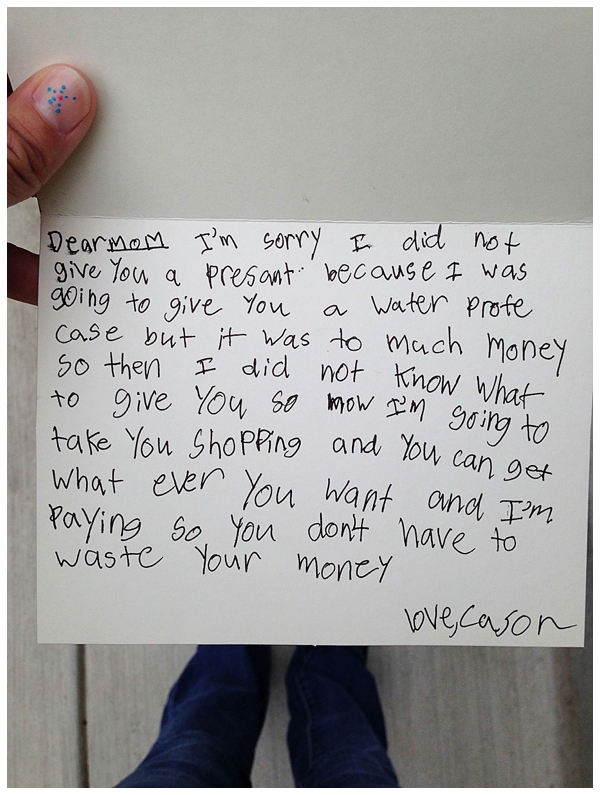 Dear mom I'm sorry I did not
give You a presant because I was
going to give You a water profe
case but it was to much money
so then I did not know what
to give You so now I'm going to
take You shopping and You can get
what ever You want and I'm
paying so You don't have to
waste Your money
love, Cason